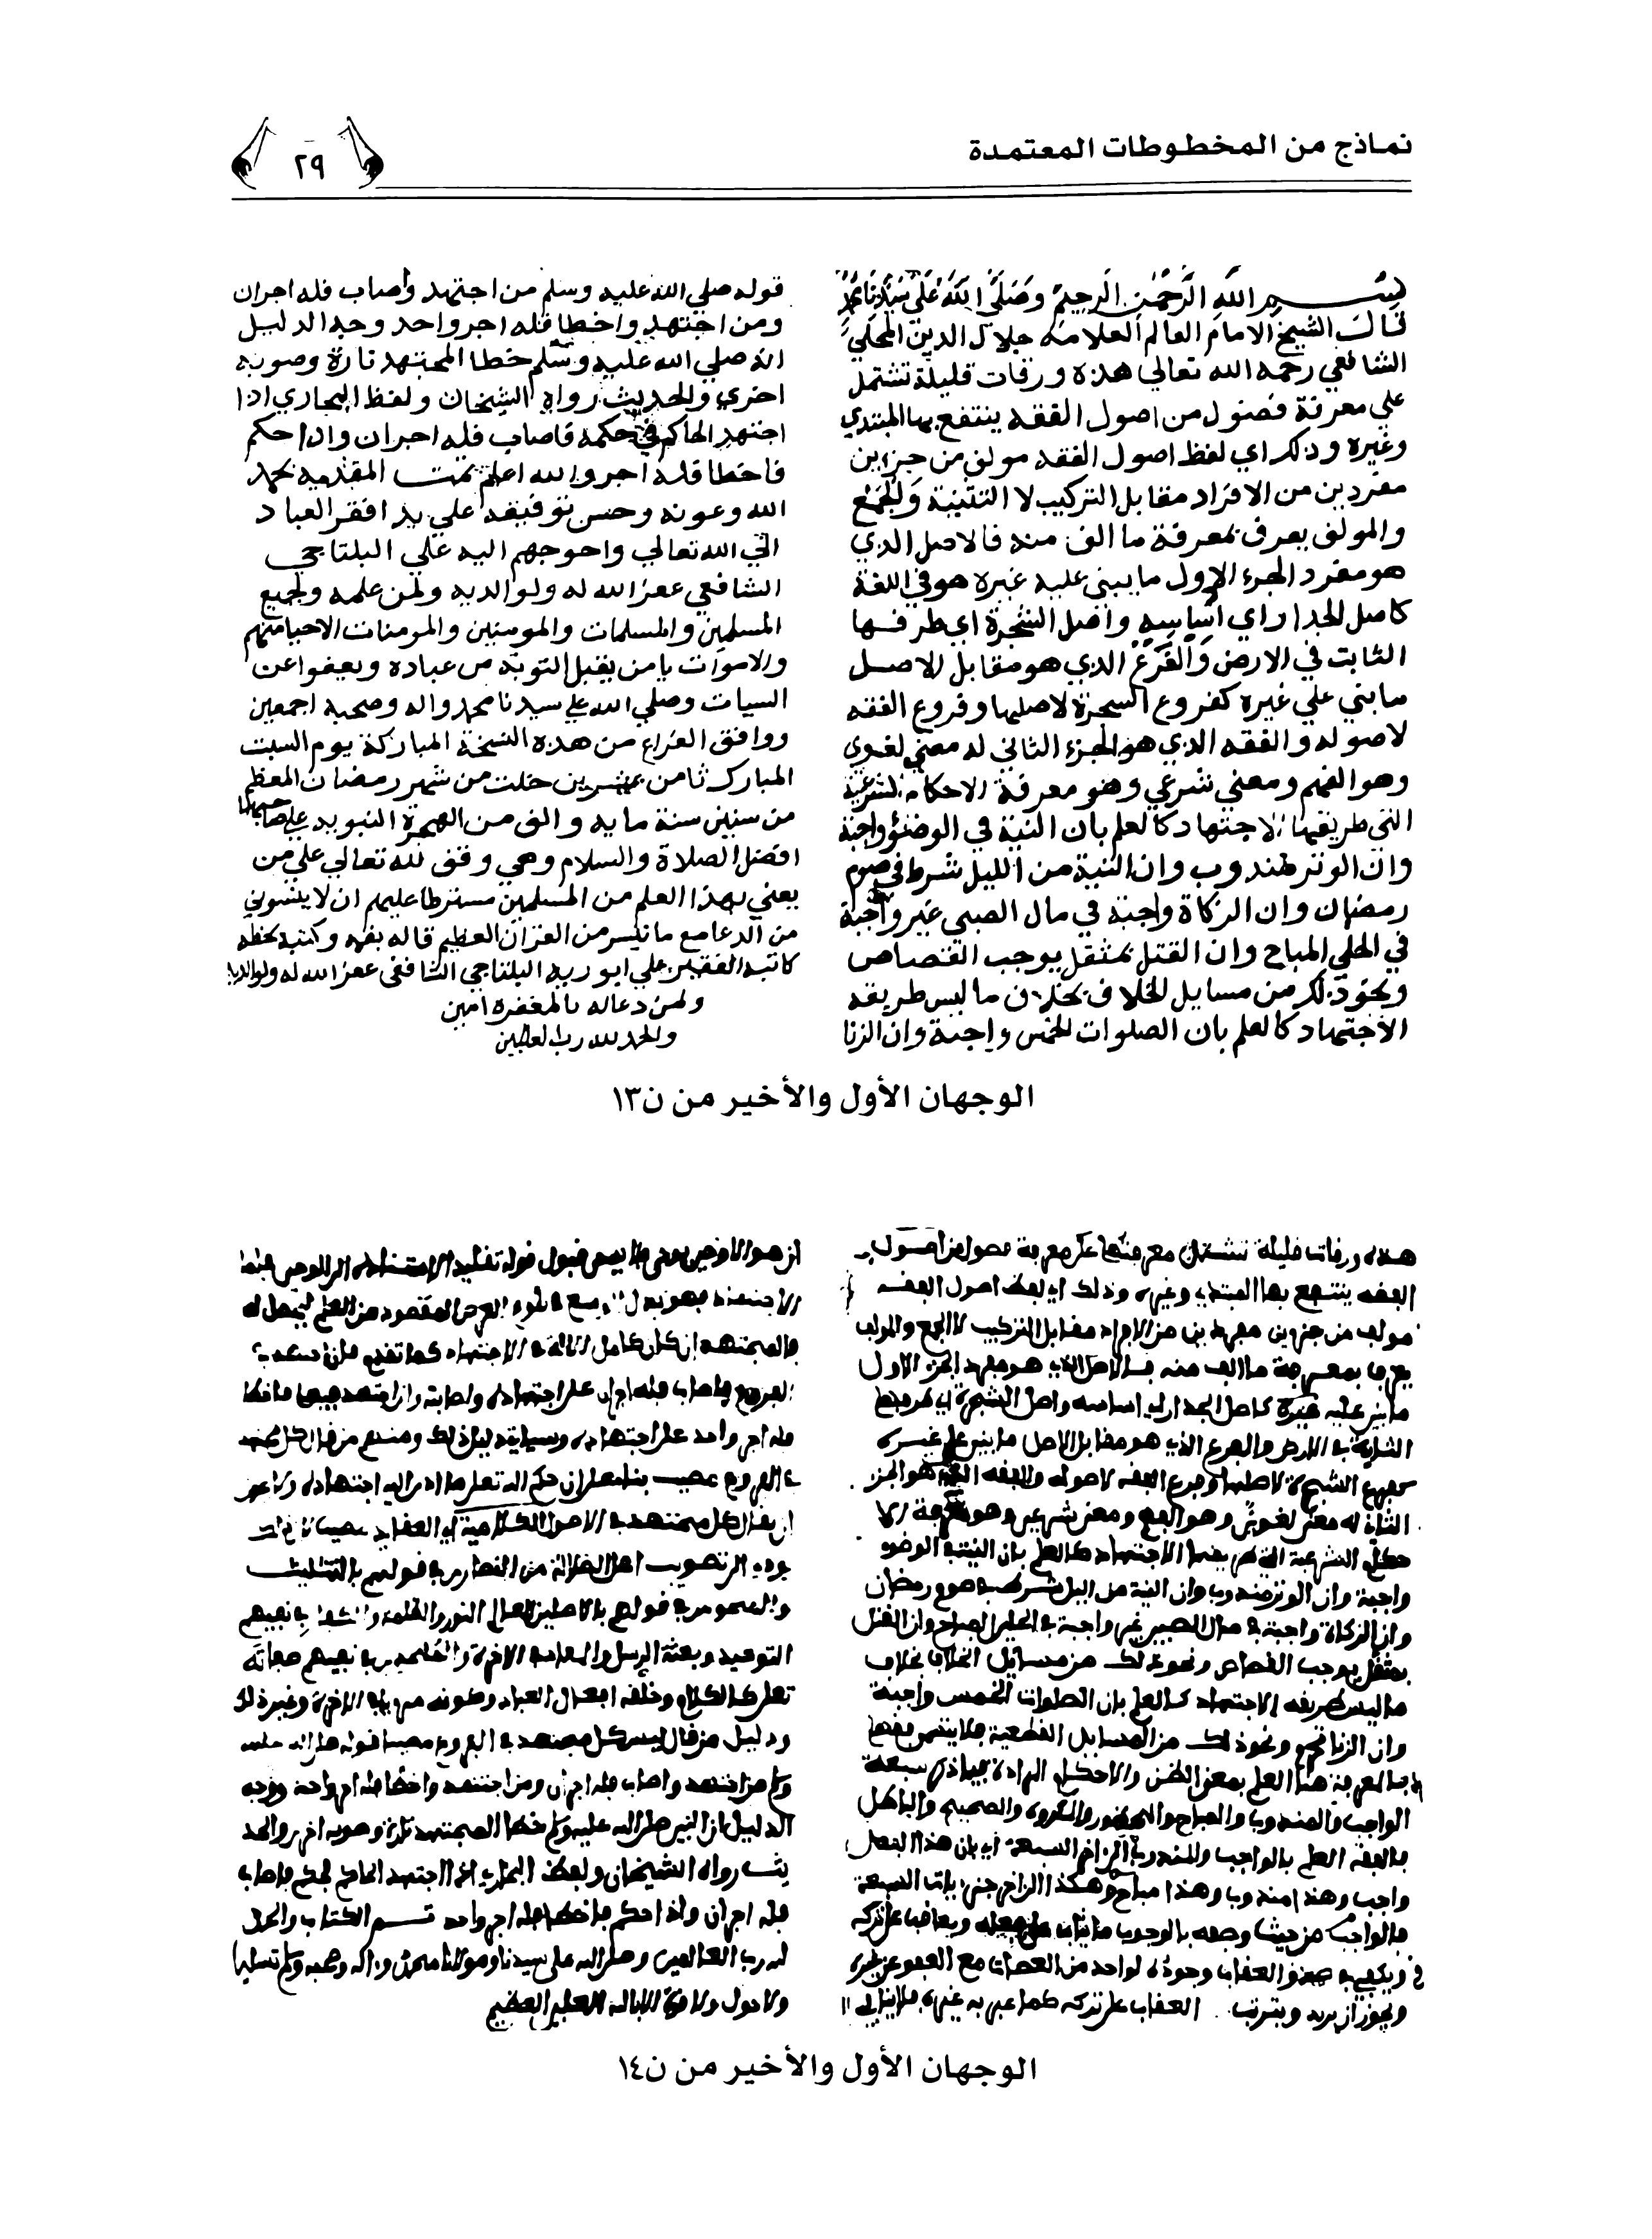 نماذج من المخطوطات المعتمدة
٢٩
بسم الله الرحمن الرحيم وصلى الله على سيدنا محمد
قال الشيخ الامام العالم العلامه جلال الدين المحلي
الشافعي رحمه الله تعالي هذه ورقات قليلة تشتمل
علي معرفة فصول من اصول الفقه ينتفع بها المبتدي
وغيره وذلك اي لفظ اصول الفقه مولف من جزءين
مفردين من الافراد مقابل التركيب لا التثنية والجمع
والمولف يعرف بمعرفة ما الف منه فالاصل الذي
هو مفرد الجزء الاول ما يبني عليه غيره هو في اللغة
كاصل الجدار اي اساسه واصل الشجرة اي طرفها
الثابت في الارض والفرع الذي هو مقابل الاصل
ما بني علي غيره كفروع الشجرة لاصلها وفروع الفقه
لاصوله والفقه الذي هو الجزء الثاني له معني لغوي
وهو الفهم ومعني شرعي وهو معرفة الاحكام الشرعية
التي طريقها الاجتهاد كالعلم بان النية في الوضوء واجبة
وان الوتر مندوب وان النية من الليل شرط في صوم
رمضان وان الزكاة واجبة في مال الصبي غير واجبة
في الحلي المباح وان القتل بمثقل يوجب القصاص
ونحو ذلك من مسايل الخلاف بخلاف ما ليس طريقه
الاجتهاد كالعلم بان الصلوات الخمس واجبة وان الزنا
قوله صلي الله عليه وسلم من اجتهد واصاب فله اجران
ومن اجتهد واخطا فله اجر واحد وجه الدليل
انه صلي الله عليه وسلم خطا المجتهد تارة وصوبه
اخري والحديث رواه الشيخان ولفظ البخاري اذا
اجتهد الحاكم في حكمه فاصاب فله اجران واذا حكم
فاخطا فله اجر والله اعلم تمت المقدمه بحمد
الله وعونه وحسن توفيقه علي يد افقر العباد
الي الله تعالي واحوجهم اليه علي البلتاجي
الشافعي غفر الله له ولوالديه ولمن علمه ولجميع
المسلمين والمسلمات والمومنين والمومنات الاحيا منهم
والاموات يا من يقبل التوبة من عباده ويعفوا عن
السيات وصلي الله علي سيدنا محمد واله وصحبه اجمعين
ووافق الفراغ من هذه النسخة المباركة يوم السبت
المبارك ثامن عشرين خلت من شهر رمضان المعظم
من سنين سنة مايه والف من الهجرة النبويه علي صاحبها
افضل الصلاة والسلام وهي وقف لله تعالي علي من
يعني بهذا العلم من المسلمين مشترطا عليهم ان لا ينسوني
من الدعا مع ما تيسر من القران العظيم قاله بفمه وكتبه بخطه
كاتبه الفقير علي ابو ريه البلتاجي الشافعي غفر الله له ولوالديه
ولمن دعا له بالمغفره امين
والحمد لله رب العالمين
الوجهان الأول والأخير من ن١٣
هذه ورقات قليلة تشتمل معرفتها على معرفة فصول من اصول
الفقه ينتفع بها المبتدي وغيره وذلك اي لفظ اصول الفقه
مولف من جزءين مفردين من الافراد مقابل التركيب لا الجمع والمولف
يعرف بمعرفة ما الف منه فالاصل الذي هو مفرد الجزء الاول
ما بني عليه غيره كاصل الجدار اي اساسه واصل الشجرة اي طرفها
الثابت في الارض والفرع الذي هو مقابل الاصل ما بني على غيره
كفروع الشجرة لاصلها وفروع الفقه لاصوله والفقه الذي هو الجزء
الثاني له معنى لغوي وهو الفهم ومعنى شرعي وهو معرفة الا
حكام الشرعية التي طريقها الاجتهاد كالعلم بان النية في الوضوء
واجبة وان الوتر مندوب وان النية من الليل شرط في صوم رمضان
وان الزكاة واجبة في مال الصبي غير واجبة في الحلي المباح وان القتل
بمثقل يوجب القصاص ونحو ذلك من مسايل الخلاف بخلاف
ما ليس طريقه الاجتهاد كالعلم بان الصلوات الخمس واجبة
وان الزنا محرم ونحو ذلك من المسايل القطعية فلا يسمى فقها
فالمعرفة هنا العلم بمعنى الظن والاحكام المرادة فيما ذكر سبعة
الواجب والمندوب والمباح والمحظور والمكروه والصحيح والباطل
فالفقه العلم بالواجب والمندوب الى اخر السبعة اي بان هذا الفعل
واجب وهذا مندوب وهذا مباح وهكذا الى اخر جزيات السبعة
فالواجب من حيث وصفه بالوجوب ما يثاب على فعله ويعاقب على تركه
ويكفي في صدق العقاب وجوده لواحد من العصاة مع العفو عن غيره
ويجوز ان يريد ويترتب العقاب على تركه كما عبر به غيره فلا ينافي
الاجتهاد فهو بذل الوسع في بلوغ الغرض المقصود من العلم ليحصل له
فالمجتهد ان كان كامل الالة في الاجتهاد كما تقدم فان اجتهد في
الفروع فاصاب فله اجران على اجتهاده واصابته وان اجتهد فيها فاخطا
فله اجر واحد على اجتهاده وسياتي دليل ذلك ومنهم من قال كل مجتهد
في الفروع مصيب بناء على ان حكم الله تعلى ما ادى اليه اجتهاده ولا يجوز
ان يقال كل مجتهد في الاصول الكلامية اي العقايد مصيب لان ذلك
يودي الى تصويب اهل الضلالة من النصارى في قولهم بالتثليث
والمجوس في قولهم بالاصلين للعالم النور والظلمة والكفار في نفيهم
التوحيد وبعثة الرسل والمعاد في الاخرة والملحدين في نفيهم صفاته
تعلى كالكلام وخلقه افعال العباد وكونه مرييا في الاخرة وغير ذلك
ودليل من قال ليس كل مجتهد في الفروع مصيبا قوله صلى الله عليه
وسلم من اجتهد واصاب فله اجران ومن اجتهد واخطا فله اجر واحد ووجه
الدليل ان النبي صلى الله عليه وسلم خطا المجتهد تارة وصوبه اخرى والحد
يث رواه الشيخان ولفظ البخاري اذا اجتهد الحاكم فحكم فاصاب
فله اجران واذا حكم فاخطا فله اجر واحد تم الكتاب والحمد
لله رب العالمين وصلى الله على سيدنا ومولانا محمد واله وصحبه وسلم تسليما
ولا حول ولا قوة الا بالله العلي العظيم
الوجهان الأول والأخير من ن١٤